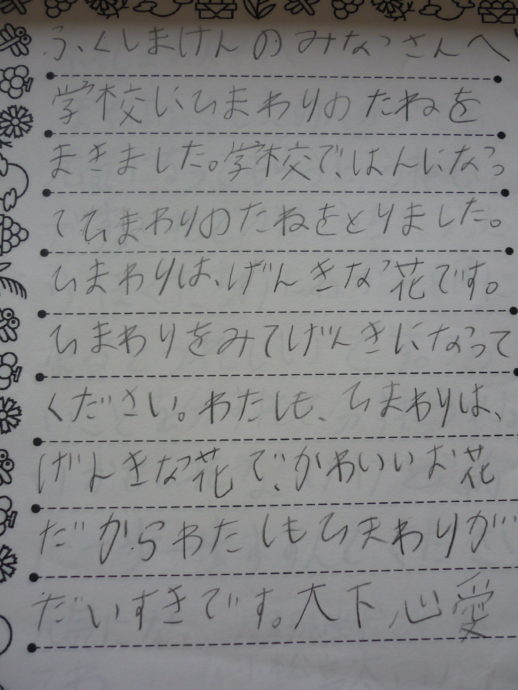 ふくしまけんのみなさんへ
学校にひまわりのたねを
まきました。学校で、はんになっ
てひまわりのたねをとりました。
ひまわりは、げんきな花です。
ひまわりをみてげんきになって
ください。わたしも、ひまわりは、
げんきな花で、かわいいお花
だからわたしもひまわりが
だいすきです。大下心愛